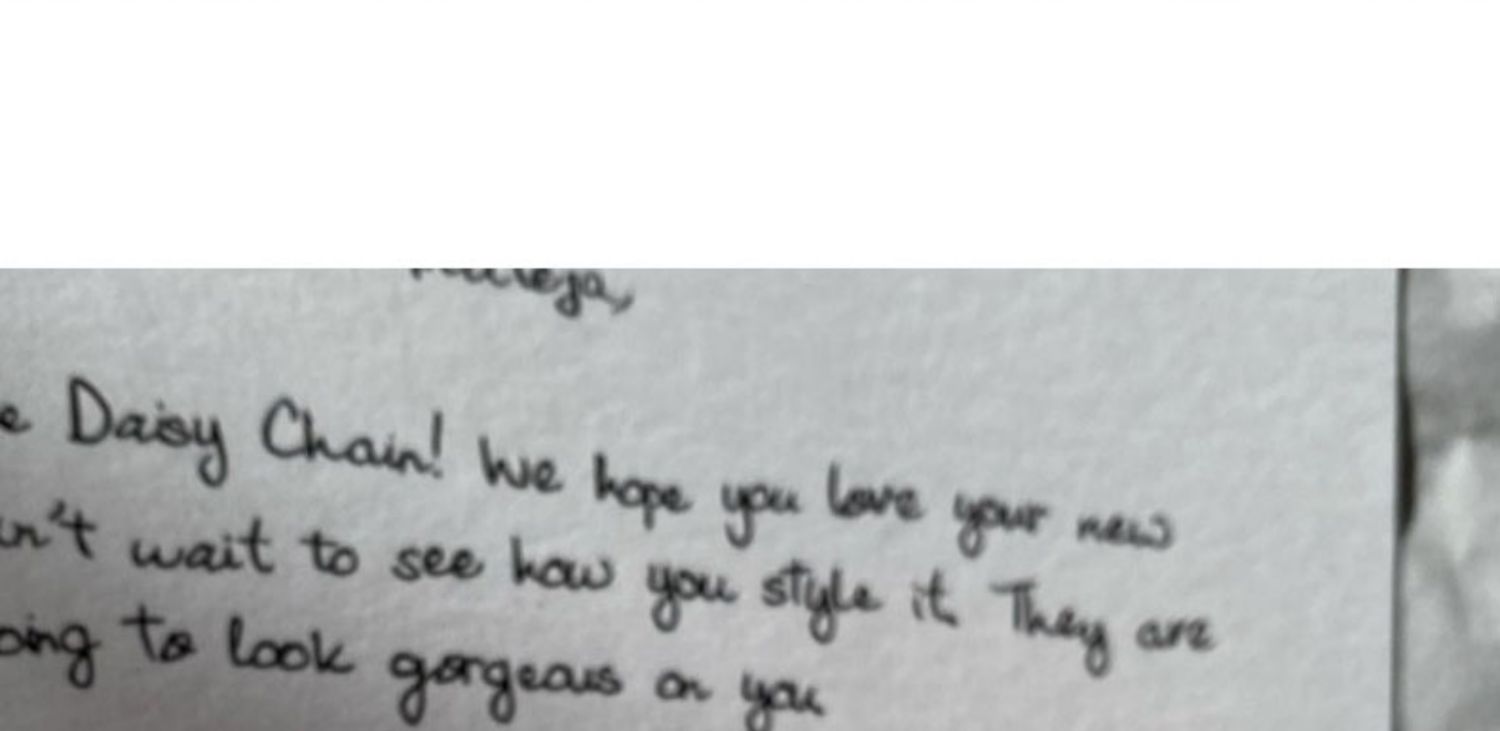 Daisy Chain! We hope you love your new
wait to see how you style it. They are
to look gorgeous on you